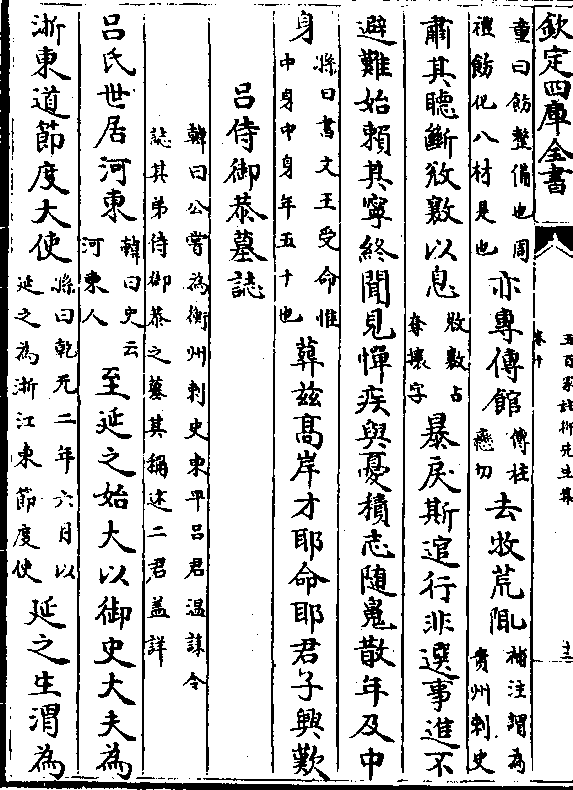 欽定四庫全書
五百家註柳先生集
卷十
童曰飭整備也周
禮飭化八材是也
亦專傳館
傳柱
戀切
去牧荒陬
補注謂為
貴州刺史
肅其聽斷敚數以息
敚數古
奪攘字
暴戾斯逭行非選事進不
避難始賴其寧終聞見憚疾與憂積志隨嵬散年及中
身
孫曰書文王受命惟
中身中身年五十也
葬兹髙岸才耶命耶君子興歎
呂侍御恭墓誌
韓曰公嘗為衡州刺史東平呂君溫誄今
誌其弟侍御恭之墓其稱述二君葢詳
呂氏世居河東
韓曰史云
河東人
至延之始大以御史大夫為
浙東道節度大使
孫曰乾元二年六月以
延之為浙江東節度使
延之生渭為